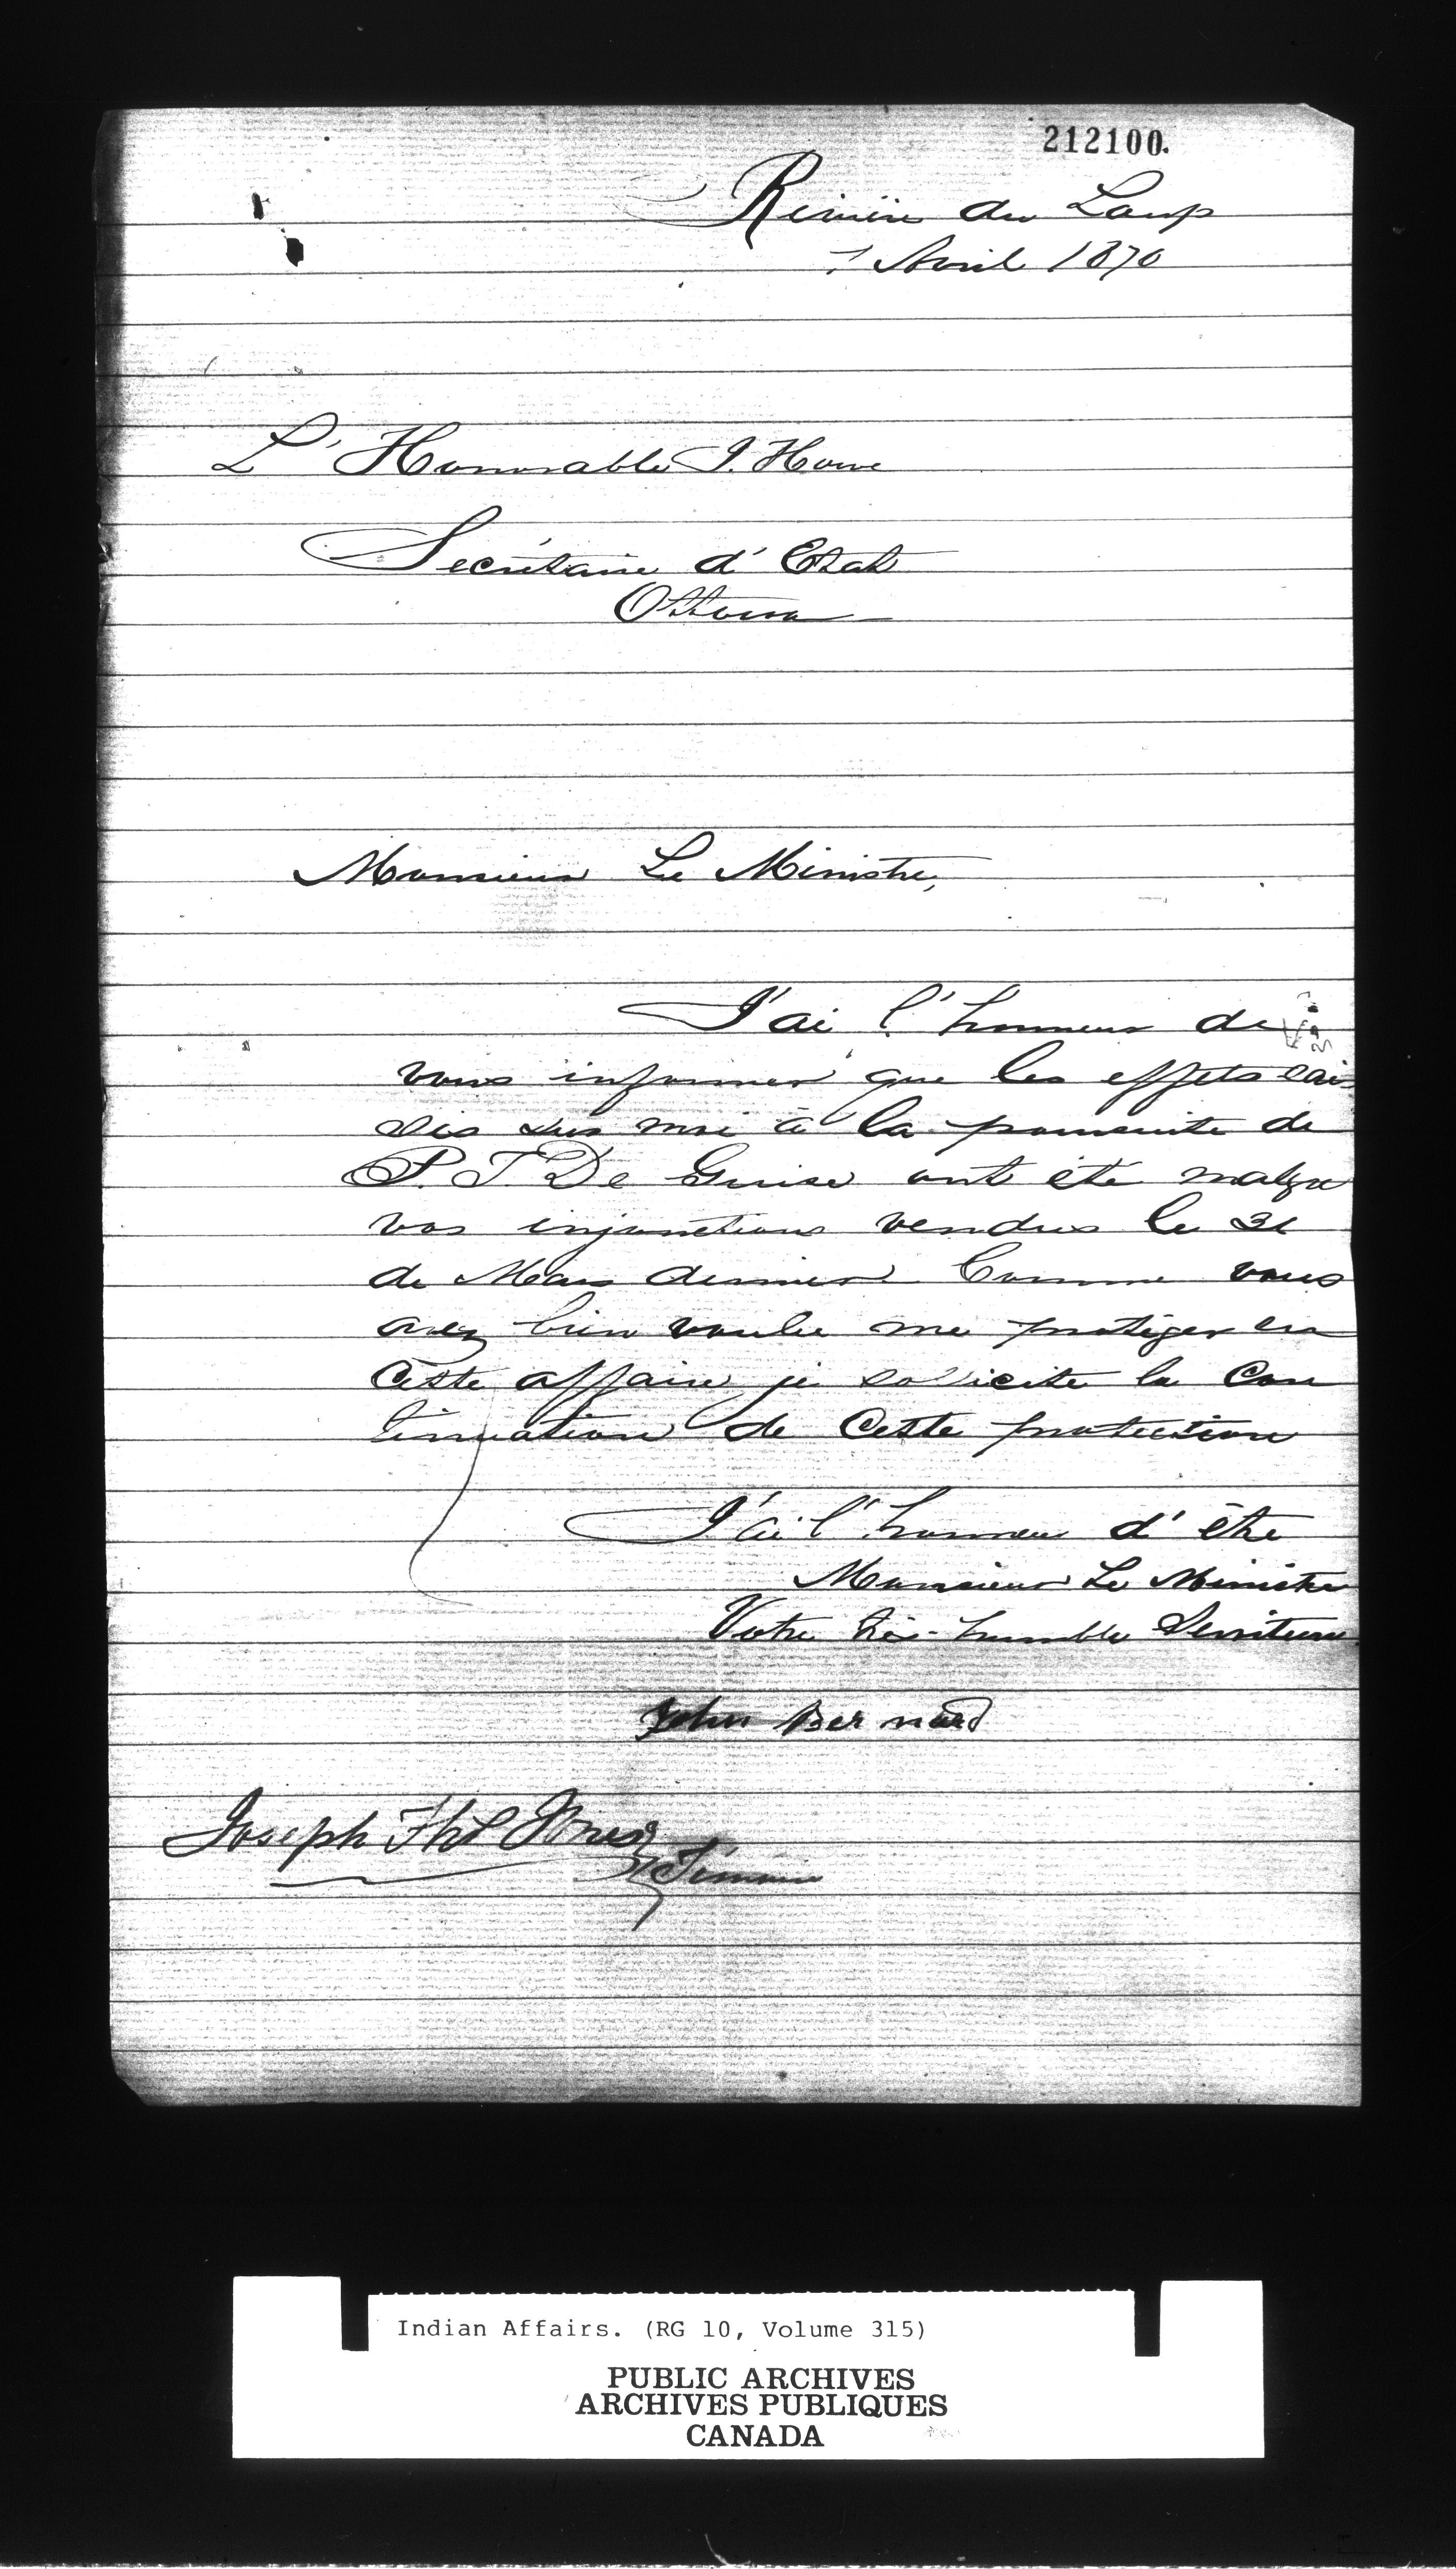 212100.
Rivière du Loup
1 Avril 1870
L'Honorable J. Howe
Secrétaire d'Etat
Ottawa
Monsieur Le Ministre,
J'ai l'honneur de
vous informer que les effets sai
sis sur moi à la poursuite de
P. T. De Guise ont été malgré
vos injonctions vendus le 31
de Mars dernier Comme vous
avez bien voulu me protéger en
cette affaire je sollicite la Con
tinuation de Cette protection
J'ai l'honneur d'être
Monsieur Le Ministre
Votre très-humble Serviteur
John Bernard
Joseph
Témoin
Indian Affairs. (RG 10, Volume 315)
PUBLIC ARCHIVES
ARCHIVES PUBLIQUES
CANADA